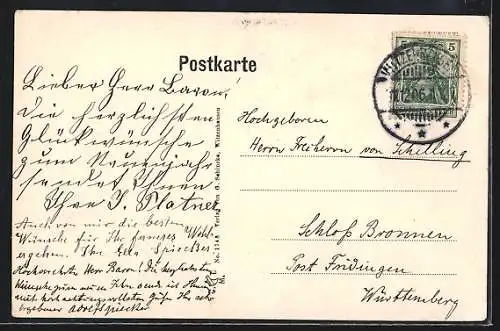 Postkarte
Lieber Herr Baron!
Die herzlichsten
Glückwünsche
zum Neuenjahr
sendet Ihnen
Ihre J. Platner
Auch von mir die besten
Wünsche für Ihr ferneres Wohl-
ergehen. Ihr Spiecker
Hochverehrter Herr Baron! Die herzlichsten
Adolf Spiecker
Verlag von G. Schincke, Witzenhausen
5 5
Hochgeboren
Herrn Freiherrn von Schelling
Schloß Bronnen
Post Fridingen
Württemberg